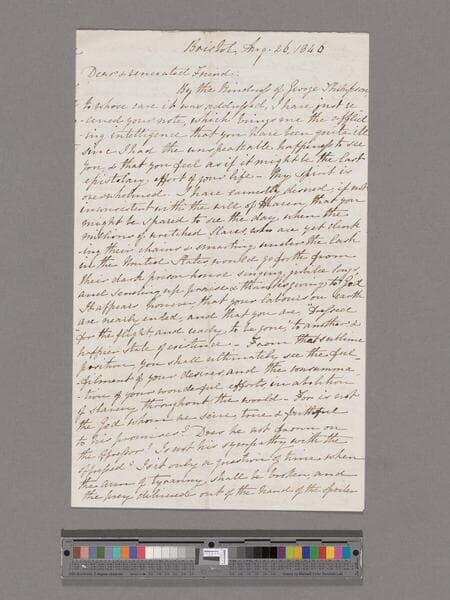 Bristol, Aug. 26, 1846
Dear & venerated Friend:
By the kindness of George Thompson,
to whose care it was addressed, I have just re-
ceived your note, which brings me the afflict-
ing intelligence that you have been quite ill
since I had the unspeakable happiness to see
you, & that you feel as if it might be the last
epistolary effort of your life. My spirit is
overwhelmed. I have earnestly desired, if not
inconsistent with the will of Heaven, that you
might be spared to see the day when the
millions of wretched slaves, who are yet clank-
ing their chains & smarting under the lash
in the United States would go forth from
their dark prison-house singing jubilee songs,
and sending up praise & thanksgiving to God.
It appears, however, that your labours on earth
are nearly ended, and that you are
for the flight, and ready to be gone, to another &
happier state of existence. From that sublime
position you shall ultimately see the ful-
filment of your desires, and the consumma-
tion of your wonderful efforts, in abolition
of slavery throughout the world. For is not
the God whom we serve, true & faithful
to his promises? Does he not frown on
the oppressor? Is not his sympathy with the
oppressed? Is it only a question of time, when
the arm of tyranny shall be broken, and
the prey delivered out of the hand of the spoiler